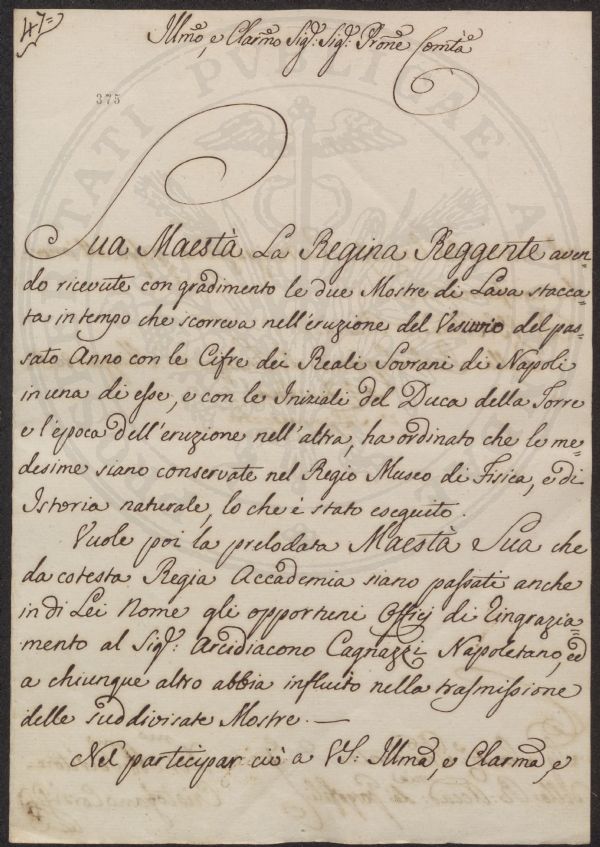 47=
Illmo, e Clarmo Sigr: Sigr: Prone Comta
375
Sua Maestà La Regina Reggente aven=
do ricevute con gradimento le due Mostre di Lava stacca=
ta in tempo che scorreva nell'éruzione del Vesuvio del pas=
sato Anno con le Cifre dei Reali Sovrani di Napoli
in una di esse, e con le Iniziali del Duca della Torre
e l'época dell'éruzione nell'altra, ha ordinato che le me=
desime siano conservate nel Regio Museo di Fisica, e di
Istoria naturale, lo che è stato eseguito.
Vuole poi la prelodata Maestà Sua che
da cotesta Regia Accademia siano passati anche
in di Lei Nome gli opportuni Officj di Ringrazia=
mento al Sigr: Arcidiacono Cagnazzi Napoletano, ed
a chiunque altro abbia influito nella trasmissione
delle suddivisate Mostre. —
Nel partecipar ciò a VS: Illma, e Clarma, e